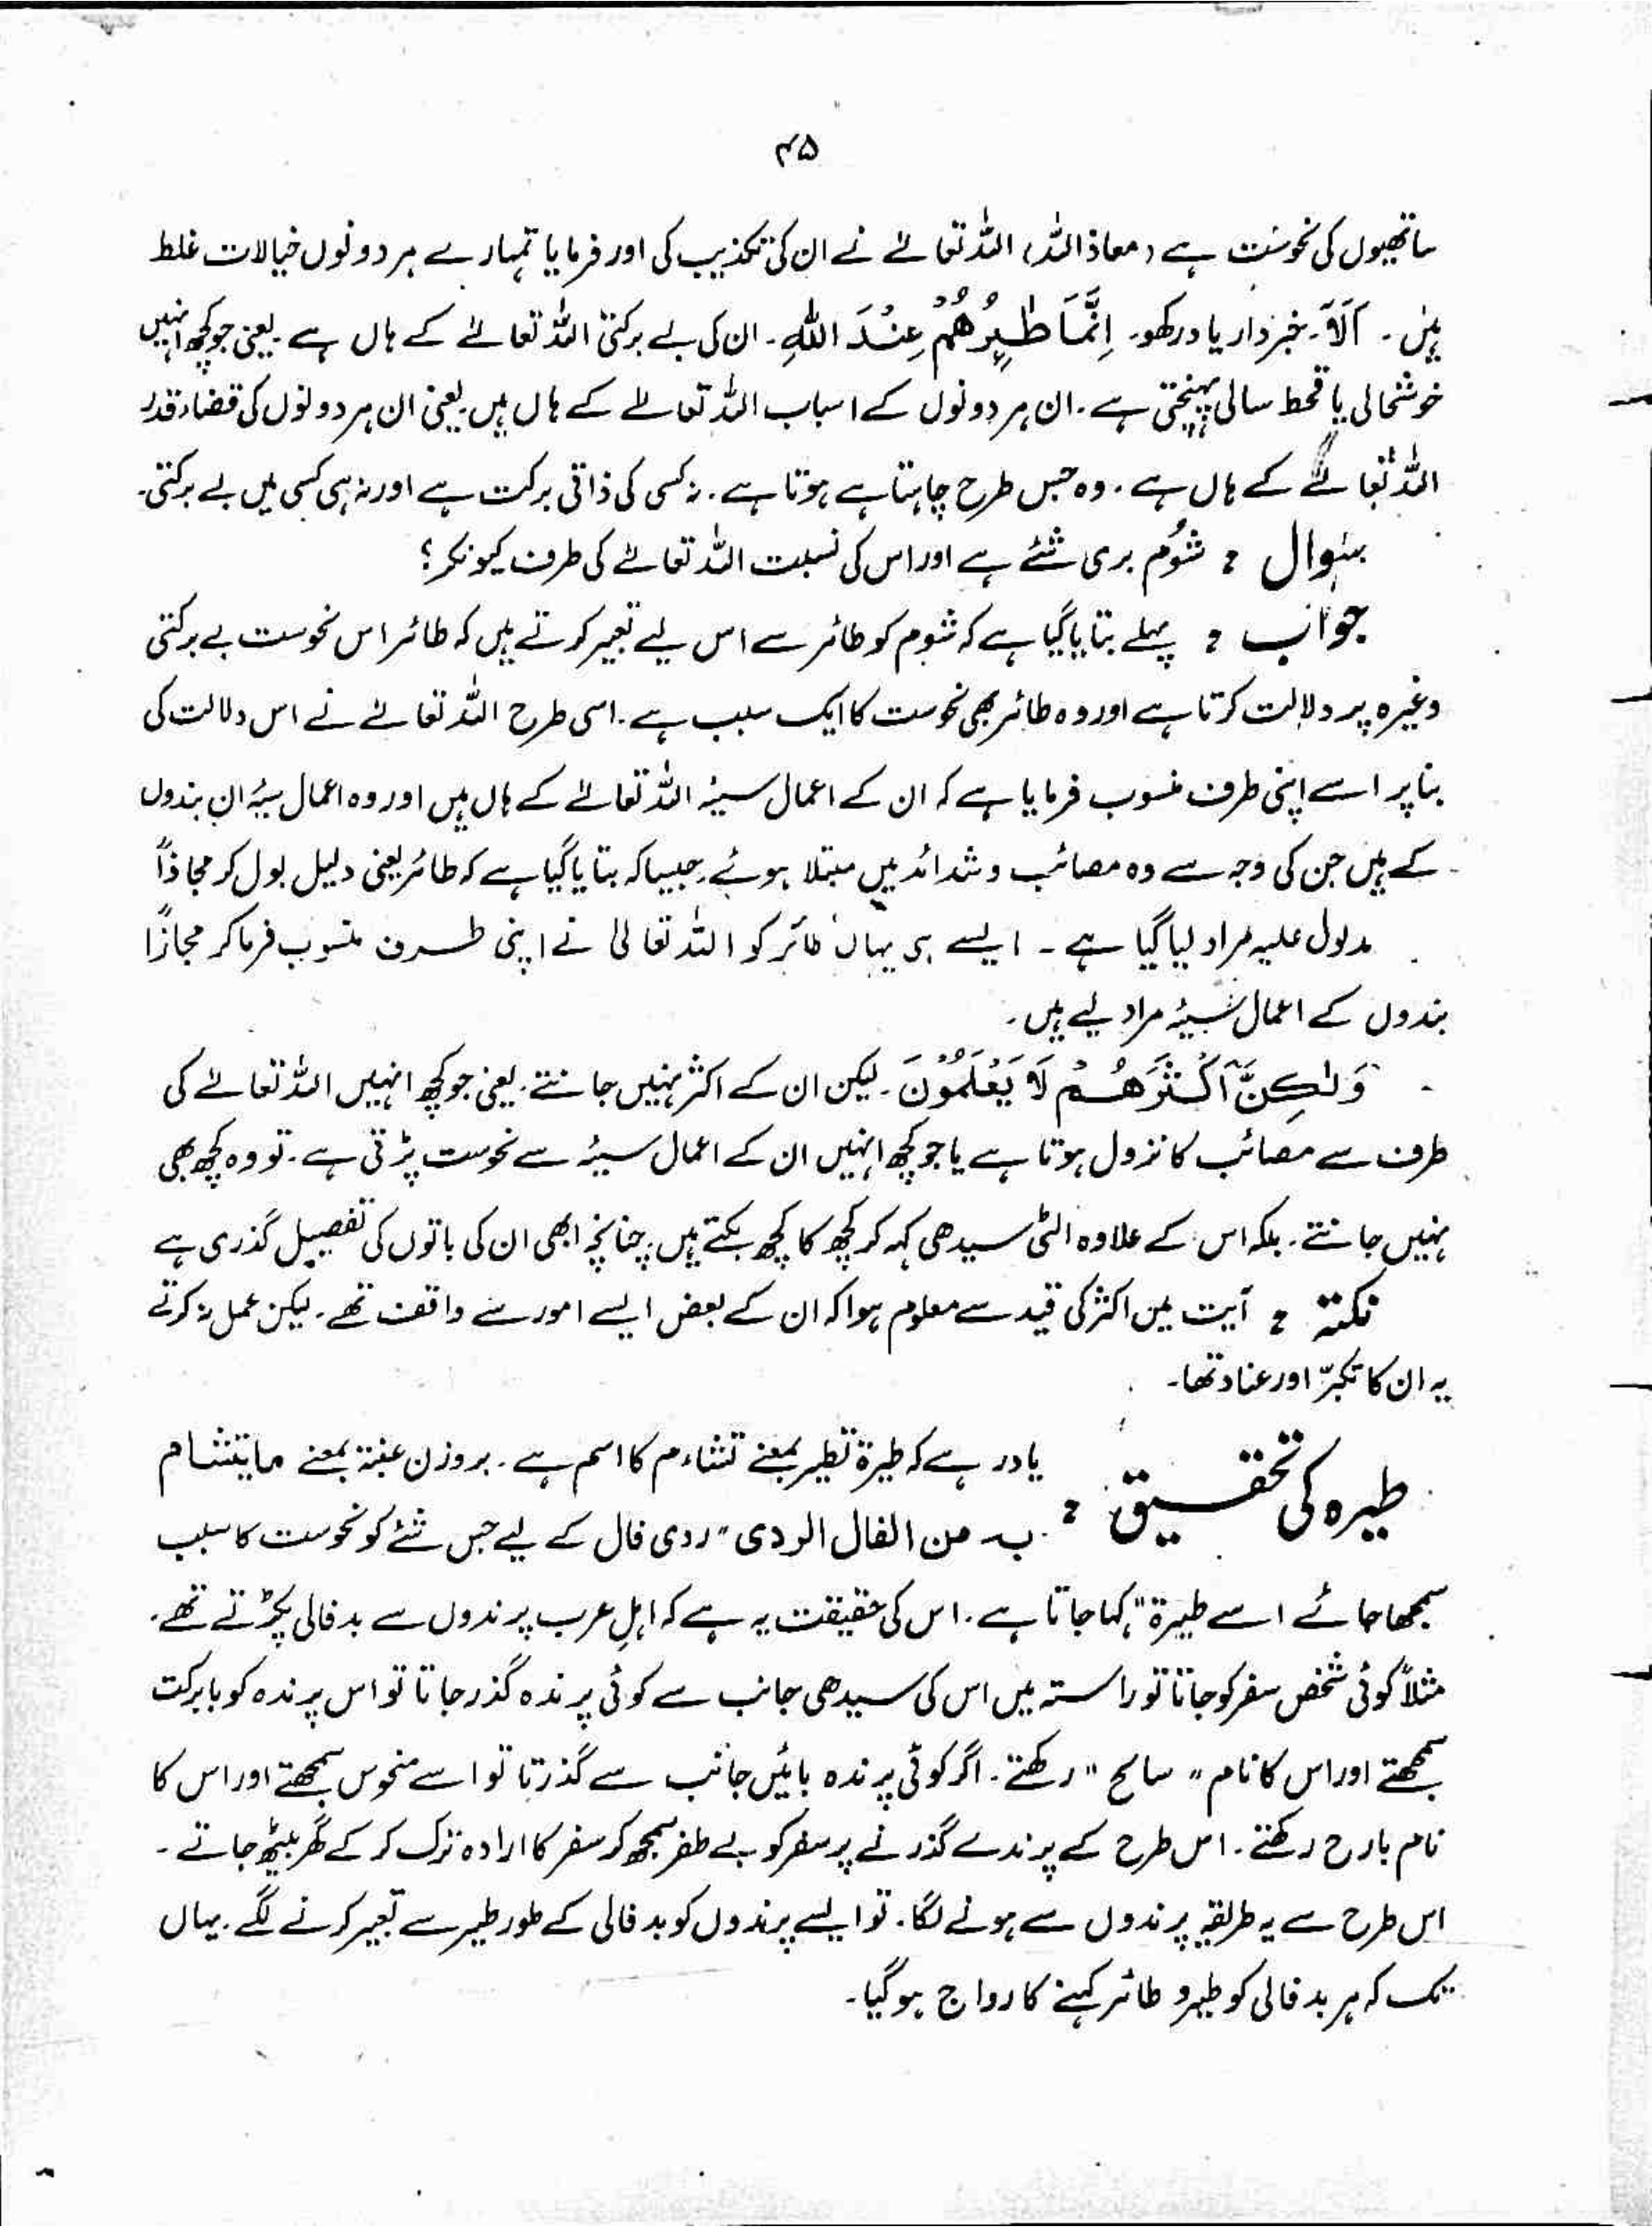 ۴۵
ساتھیوں کی نحوست ہے (معاذ اللہ) اللہ تعالےٰ نے ان کی تکذیب کی اور فرمایا تمہارے ہر دونوں خیالات غلط
ہیں ۔ اَلَآ ۔ خبردار یاد رکھو۔ اِنَّمَا طٰٓئِرُهُمْ عِنْدَ اللّٰهِ ۔ ان کی بے برکتی اللہ تعالےٰ کے ہاں ہے ۔ یعنی جو کچھ انہیں
خوشحالی یا قحط سالی پہنچتی ہے ۔ ان ہر دونوں کے اسباب اللہ تعالےٰ کے ہاں ہیں یعنی ان ہر دونوں کی قضاء قدر
اللہ تعالےٰ کے ہاں ہے ۔ وہ جس طرح چاہتا ہے ہوتا ہے ۔ نہ کسی کی ذاتی برکت ہے اور نہ ہی کسی میں بے برکتی۔
سوال : شوم بری شئے ہے اور اس کی نسبت اللہ تعالےٰ کی طرف کیونکر؟
جواب : پہلے بتایا گیا ہے کہ شوم کو طائر سے اس لیے تعبیر کرتے ہیں کہ طائر اس نحوست بے برکتی
وغیرہ پر دلالت کرتا ہے اور وہ طائر بھی نحوست کا ایک سبب ہے ۔ اسی طرح اللہ تعالےٰ نے اس دلالت کی
بنا پر اسے اپنی طرف منسوب فرمایا ہے کہ ان کے اعمال سیئہ اللہ تعالےٰ کے ہاں ہیں اور وہ اعمال سیئہ ان بندوں
کے ہیں جن کی وجہ سے وہ مصائب و شدائد میں مبتلا ہوئے ۔ جیسا کہ بتایا گیا ہے کہ طائر یعنی دلیل بول کر مجاذاً
مدلول علیہ مراد لیا گیا ہے ۔ ایسے ہی یہاں طائر کو اللہ تعالیٰ نے اپنی طرف منسوب فرما کر مجازًا
بندوں کے اعمال سیئہ مراد لیے ہیں ۔
وَلٰكِنَّ اَكْثَرَهُمْ لَا يَعْلَمُوْنَ ۔ لیکن ان کے اکثر نہیں جانتے ۔ یعنی جو کچھ انہیں اللہ تعالےٰ کی
طرف سے مصائب کا نزول ہوتا ہے یا جو کچھ انہیں ان کے اعمال سیئہ سے نحوست پڑتی ہے ۔ تو وہ کچھ بھی
نہیں جانتے ۔ بلکہ اس کے علاوہ الٹی سیدھی کہہ کر کچھ کا کچھ بکتے ہیں ۔ چنانچہ ابھی ان کی باتوں کی تفصیل گذری ہے
نکتہ : آیت میں اکثر کی قید سے معلوم ہوا کہ ان کے بعض ایسے امور سے واقف تھے ۔ لیکن عمل نہ کرتے
یہ ان کا تکبّر اور عناد تھا۔
طیرہ کی تحقیق : یاد رہے کہ طیرۃ تطیر بمعنے تشاءم کا اسم ہے ۔ بروزن عنبۃ بمعنے مایتشام
بہ من الفال الردی " ردی فال کے لیے جس شئے کو نحوست کا سبب
سمجھا جائے اسے طیرۃ" کہا جاتا ہے ۔ اس کی حقیقت یہ ہے کہ اہلِ عرب پرندوں سے بدفالی پکڑتے تھے۔
مثلاً کوئی شخص سفر کو جاتا تو راستہ میں اس کی سیدھی جانب سے کوئی پرندہ گذر جاتا تو اس پرندہ کو بابرکت
سمجھتے اور اس کا نام " سالح " رکھتے ۔ اگر کوئی پرندہ بائیں جانب سے گذرتا تو اسے منحوس سمجھتے اور اس کا
نام بارح رکھتے ۔ اس طرح کے پرندے گذرنے پر سفر کو بے ظفر سمجھ کر سفر کا ارادہ ترک کر کے گھر بیٹھ جاتے ۔
اس طرح سے یہ طریقہ پرندوں سے ہونے لگا۔ تو ایسے پرندوں کو بدفالی کے طور طیر سے تعبیر کرنے لگے ۔ یہاں
تک کہ ہر بدفالی کو طیر و طائر کہنے کا رواج ہو گیا ۔